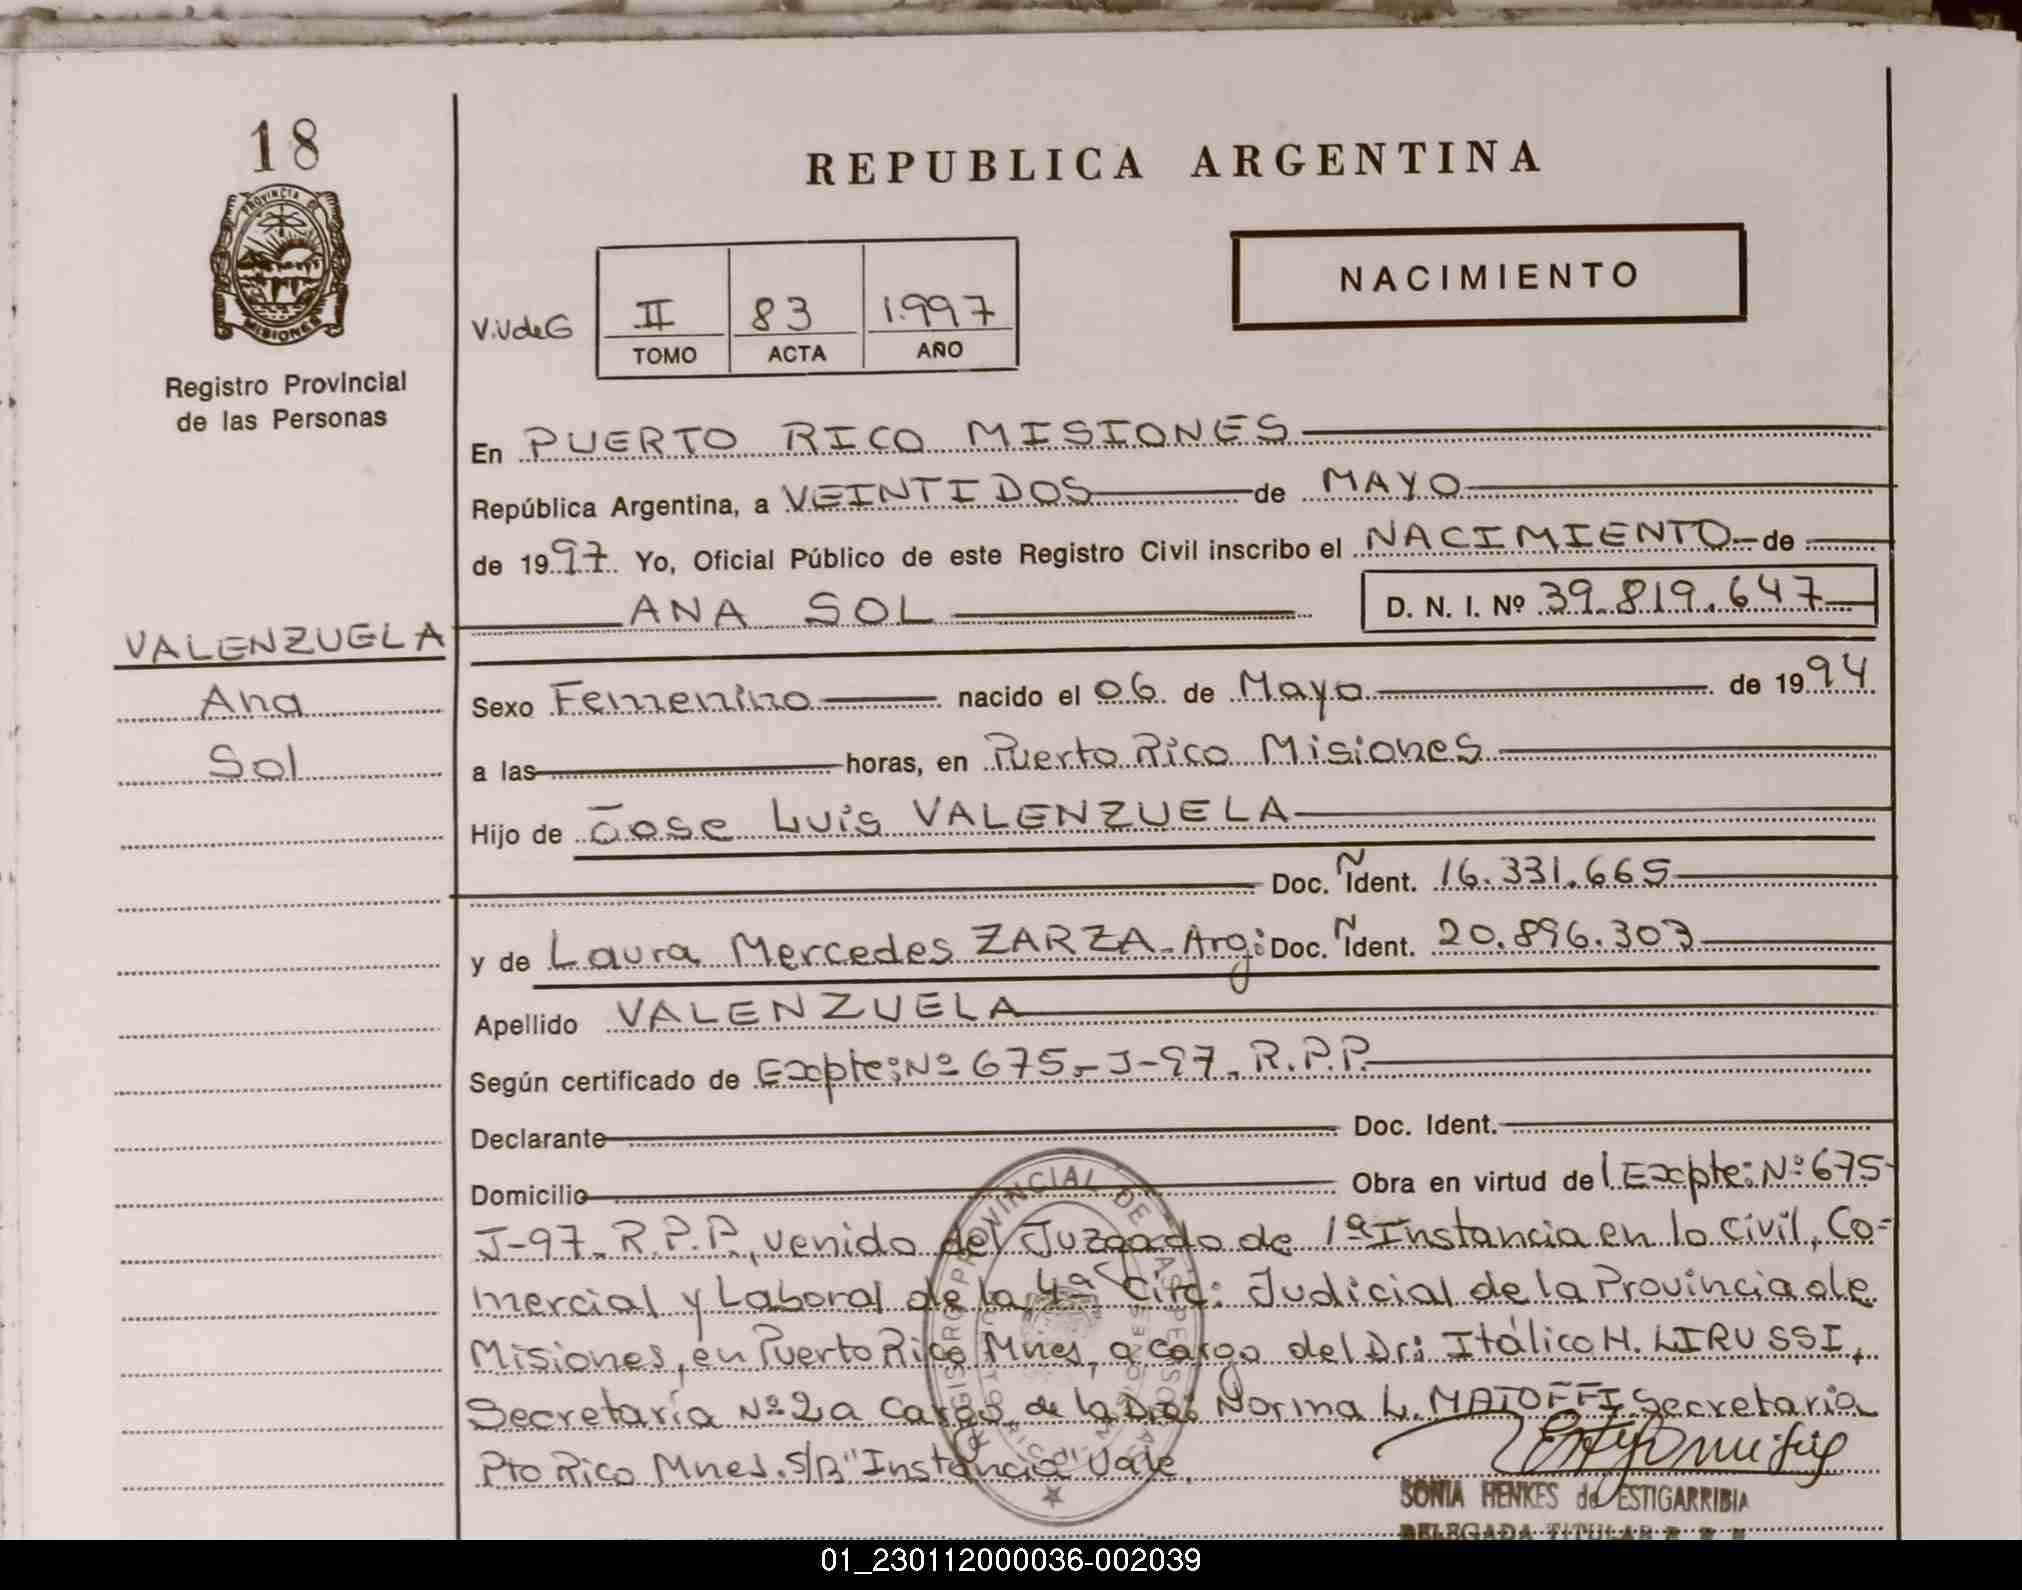 18
PROVINCIA DE
MISIONES
Registro Provincial
de las Personas
REPUBLICA ARGENTINA
NACIMIENTO
V.VdeG
II 83 1.997
TOMO ACTA AÑO
En PUERTO RICO MISIONES
República Argentina, a VEINTIDOS de MAYO
de 1997 Yo, Oficial Público de este Registro Civil inscribo el NACIMIENTO de
ANA SOL D. N. I. Nº 39.819.647
VALENZUELA
Ana
Sol
Sexo Femenino nacido el 06 de Mayo de 1994
a las horas, en Puerto Rico Misiones
Hijo de Jose Luis VALENZUELA
Doc. Ñ Ident. 16.331.665
y de Laura Mercedes ZARZA-Arg: Doc. Ñ Ident. 20.896.303
Apellido VALENZUELA
Según certificado de Expte: Nº 675-J-97. R.P.P.
Declarante Doc. Ident.
Domicilio Obra en virtud del Expte: Nº 675-
J-97. R.P.P., venido del Juzgado de 1ª Instancia en lo Civil, Co=
mercial y Laboral de la 4ª Circ: Judicial de la Provincia de
Misiones, en Puerto Rico Mnes, a cargo del Dr: Itálico H. LIRUSSI,
Secretaría Nº 2 a cargo de la Dra: Norma L. MATOFFI Secretaria
Pto Rico Mnes. S/R "Instancia" Vale.
REGISTRO PROVINCIAL DE LAS PERSONAS
SONIA HENKES de ESTIGARRIBIA
DELEGADA TITULAR
01_230112000036-002039